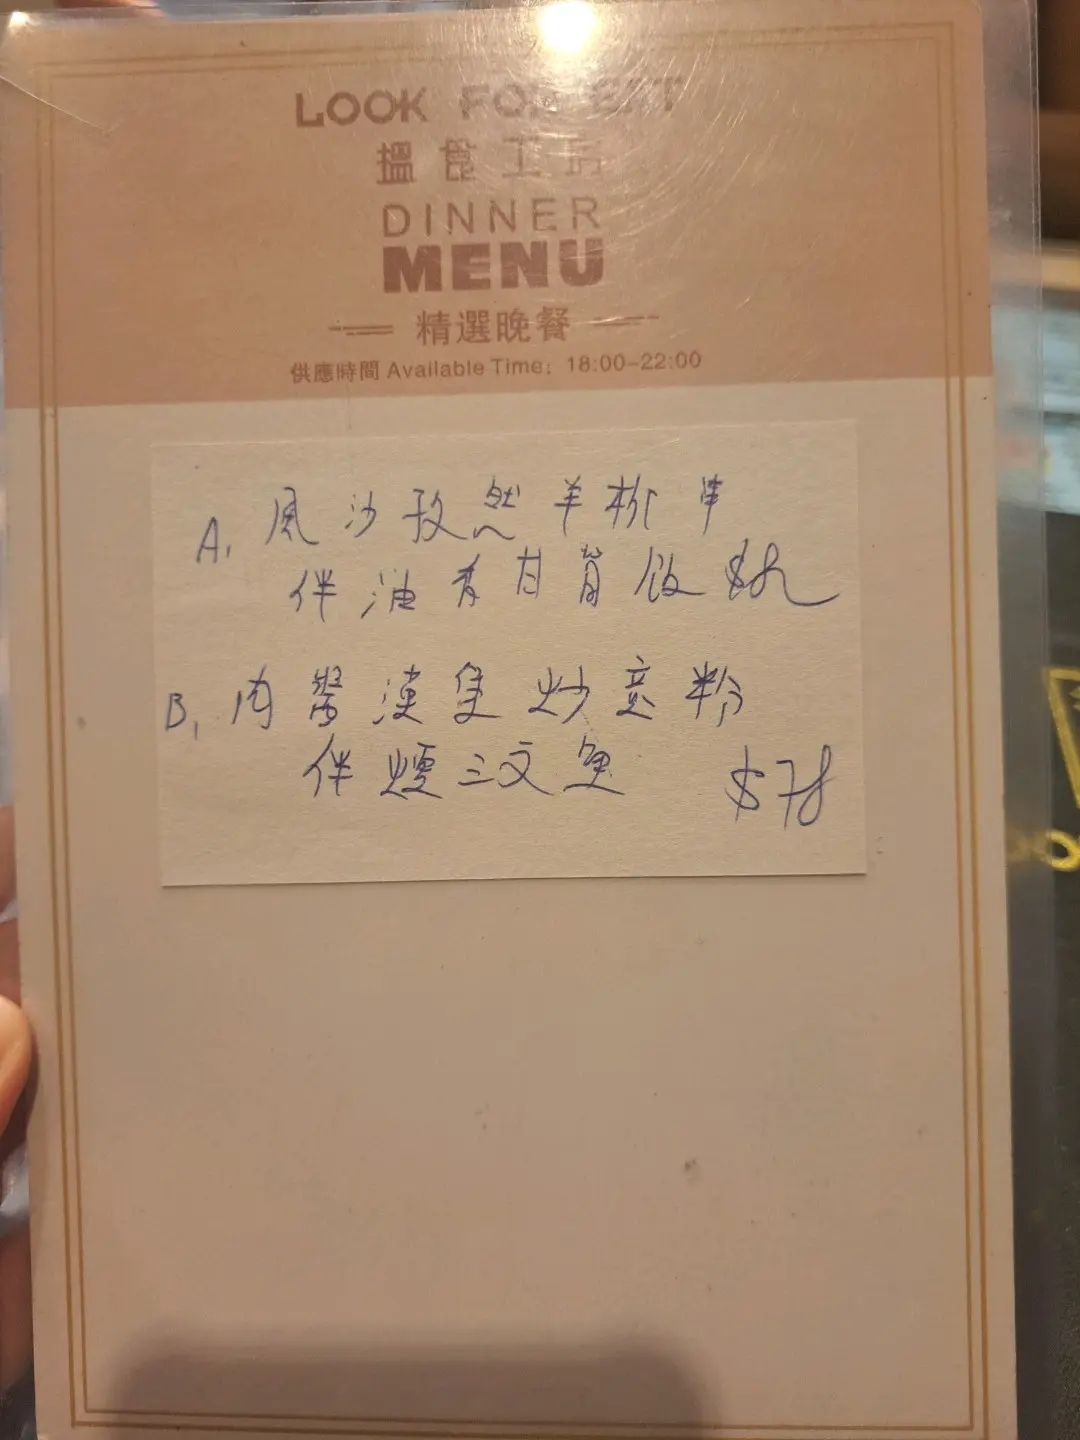 LOOK FOR EAT
搵食工房
DINNER
MENU
精選晚餐
供應時間 Available Time: 18:00-22:00
A. 風沙孜然羊柳串
伴油有甘筍飯
B. 肉 炒意粉
伴煙三文魚 $78